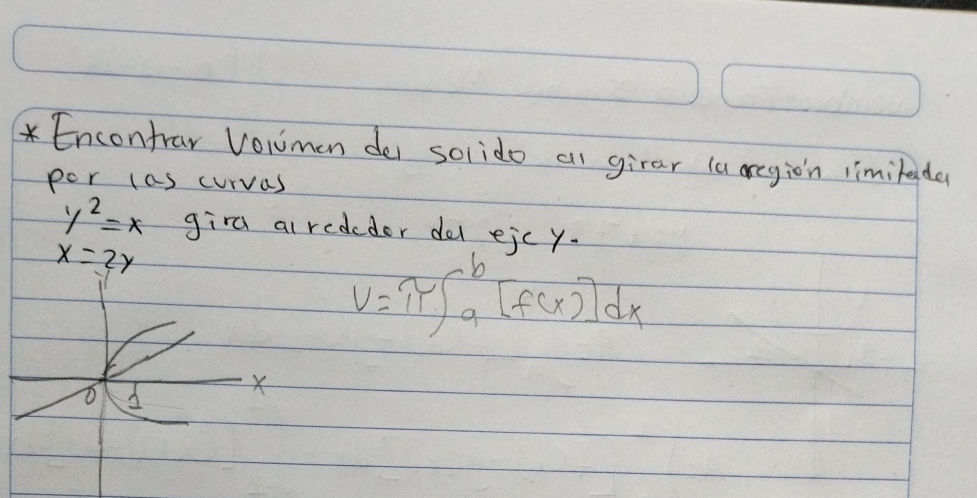 * Encontrar Volúmen del solido al girar la región limitada
por las curvas
y²=x gira alrededor del eje y.
x=2y
V=π∫ₐᵇ [f(x)]dx
y
x
0 1